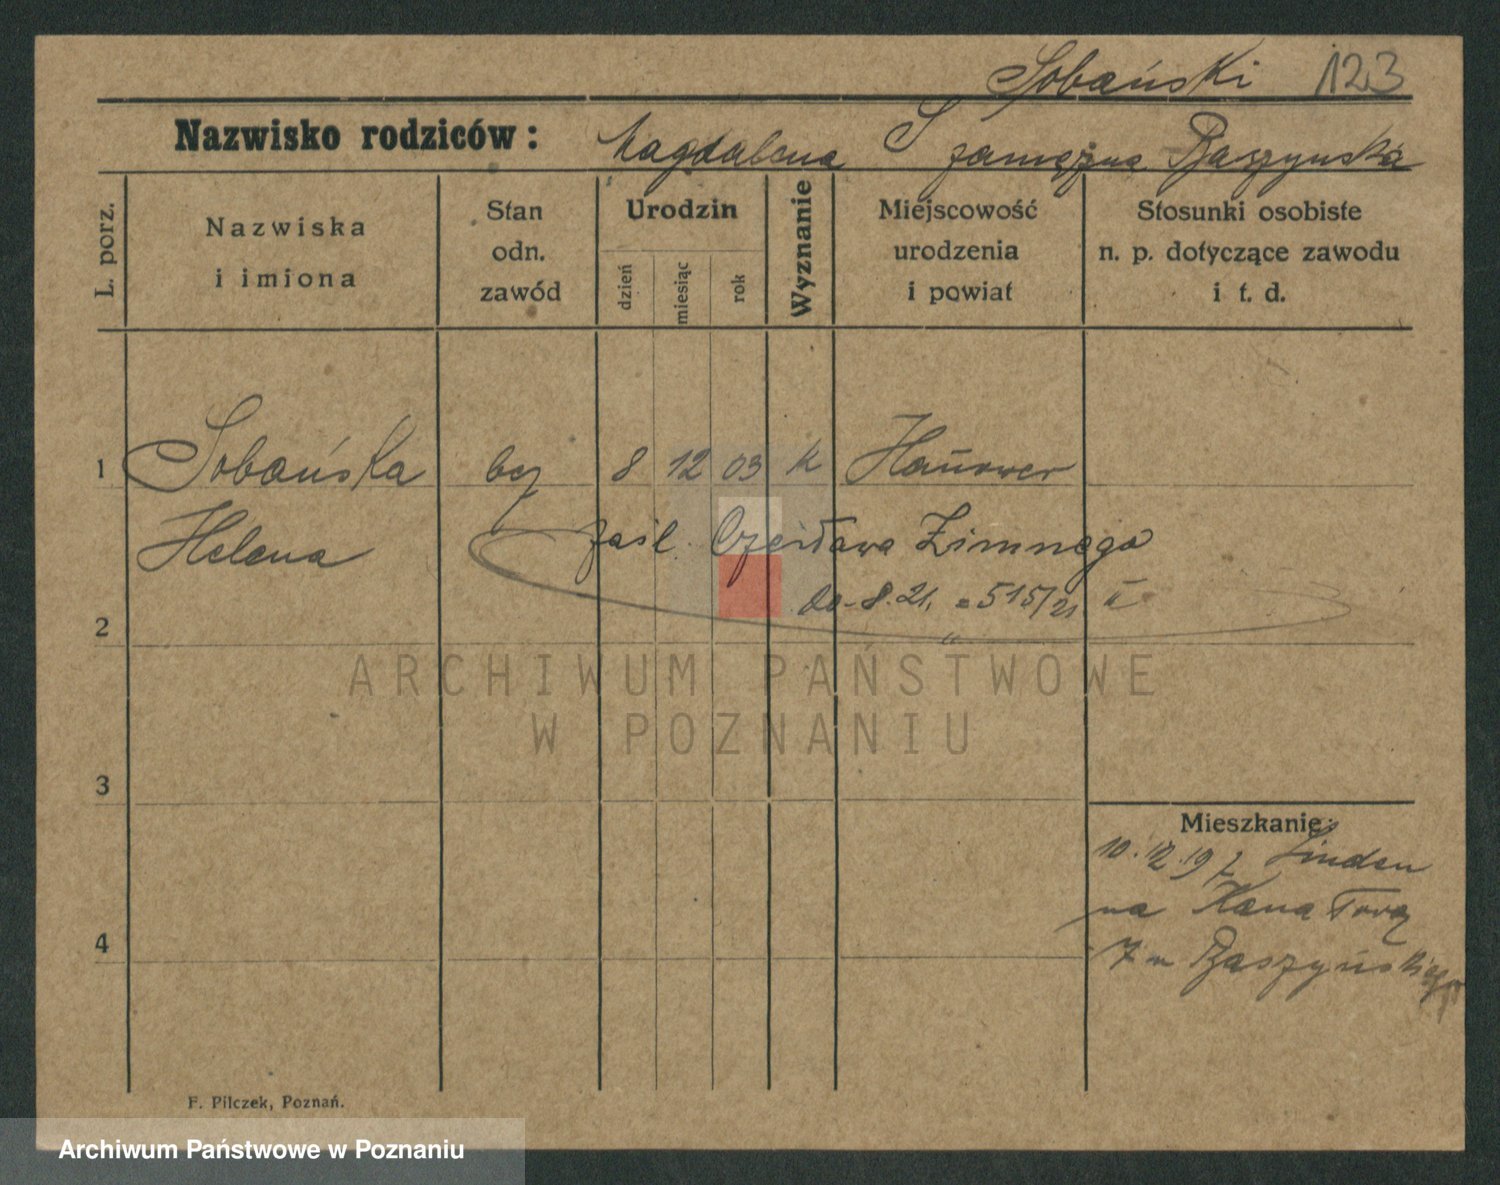 Sobański 123
Nazwisko rodziców: Magdalena S zamężna Baszynska
L. porz.
Nazwiska
i imiona
Stan
odn.
zawód
Urodzin
dzień
miesiąc
rok
Wyznanie
Miejscowość
urodzenia
i powiat
Stosunki osobiste
n. p. dotyczące zawodu
i t. d.
1 Sobańska bez 8 12 03 k Hannower
Helena zaśl. Czesława Zimnego
8.21. = 515/21 II
2
ARCHIWUM PAŃSTWOWE
W POZNANIU
3
Mieszkanie:
10.12.19 z Linden
na
4
7 u Baszyńskiego
F. Pilczek, Poznań.
Archiwum Państwowe w Poznaniu